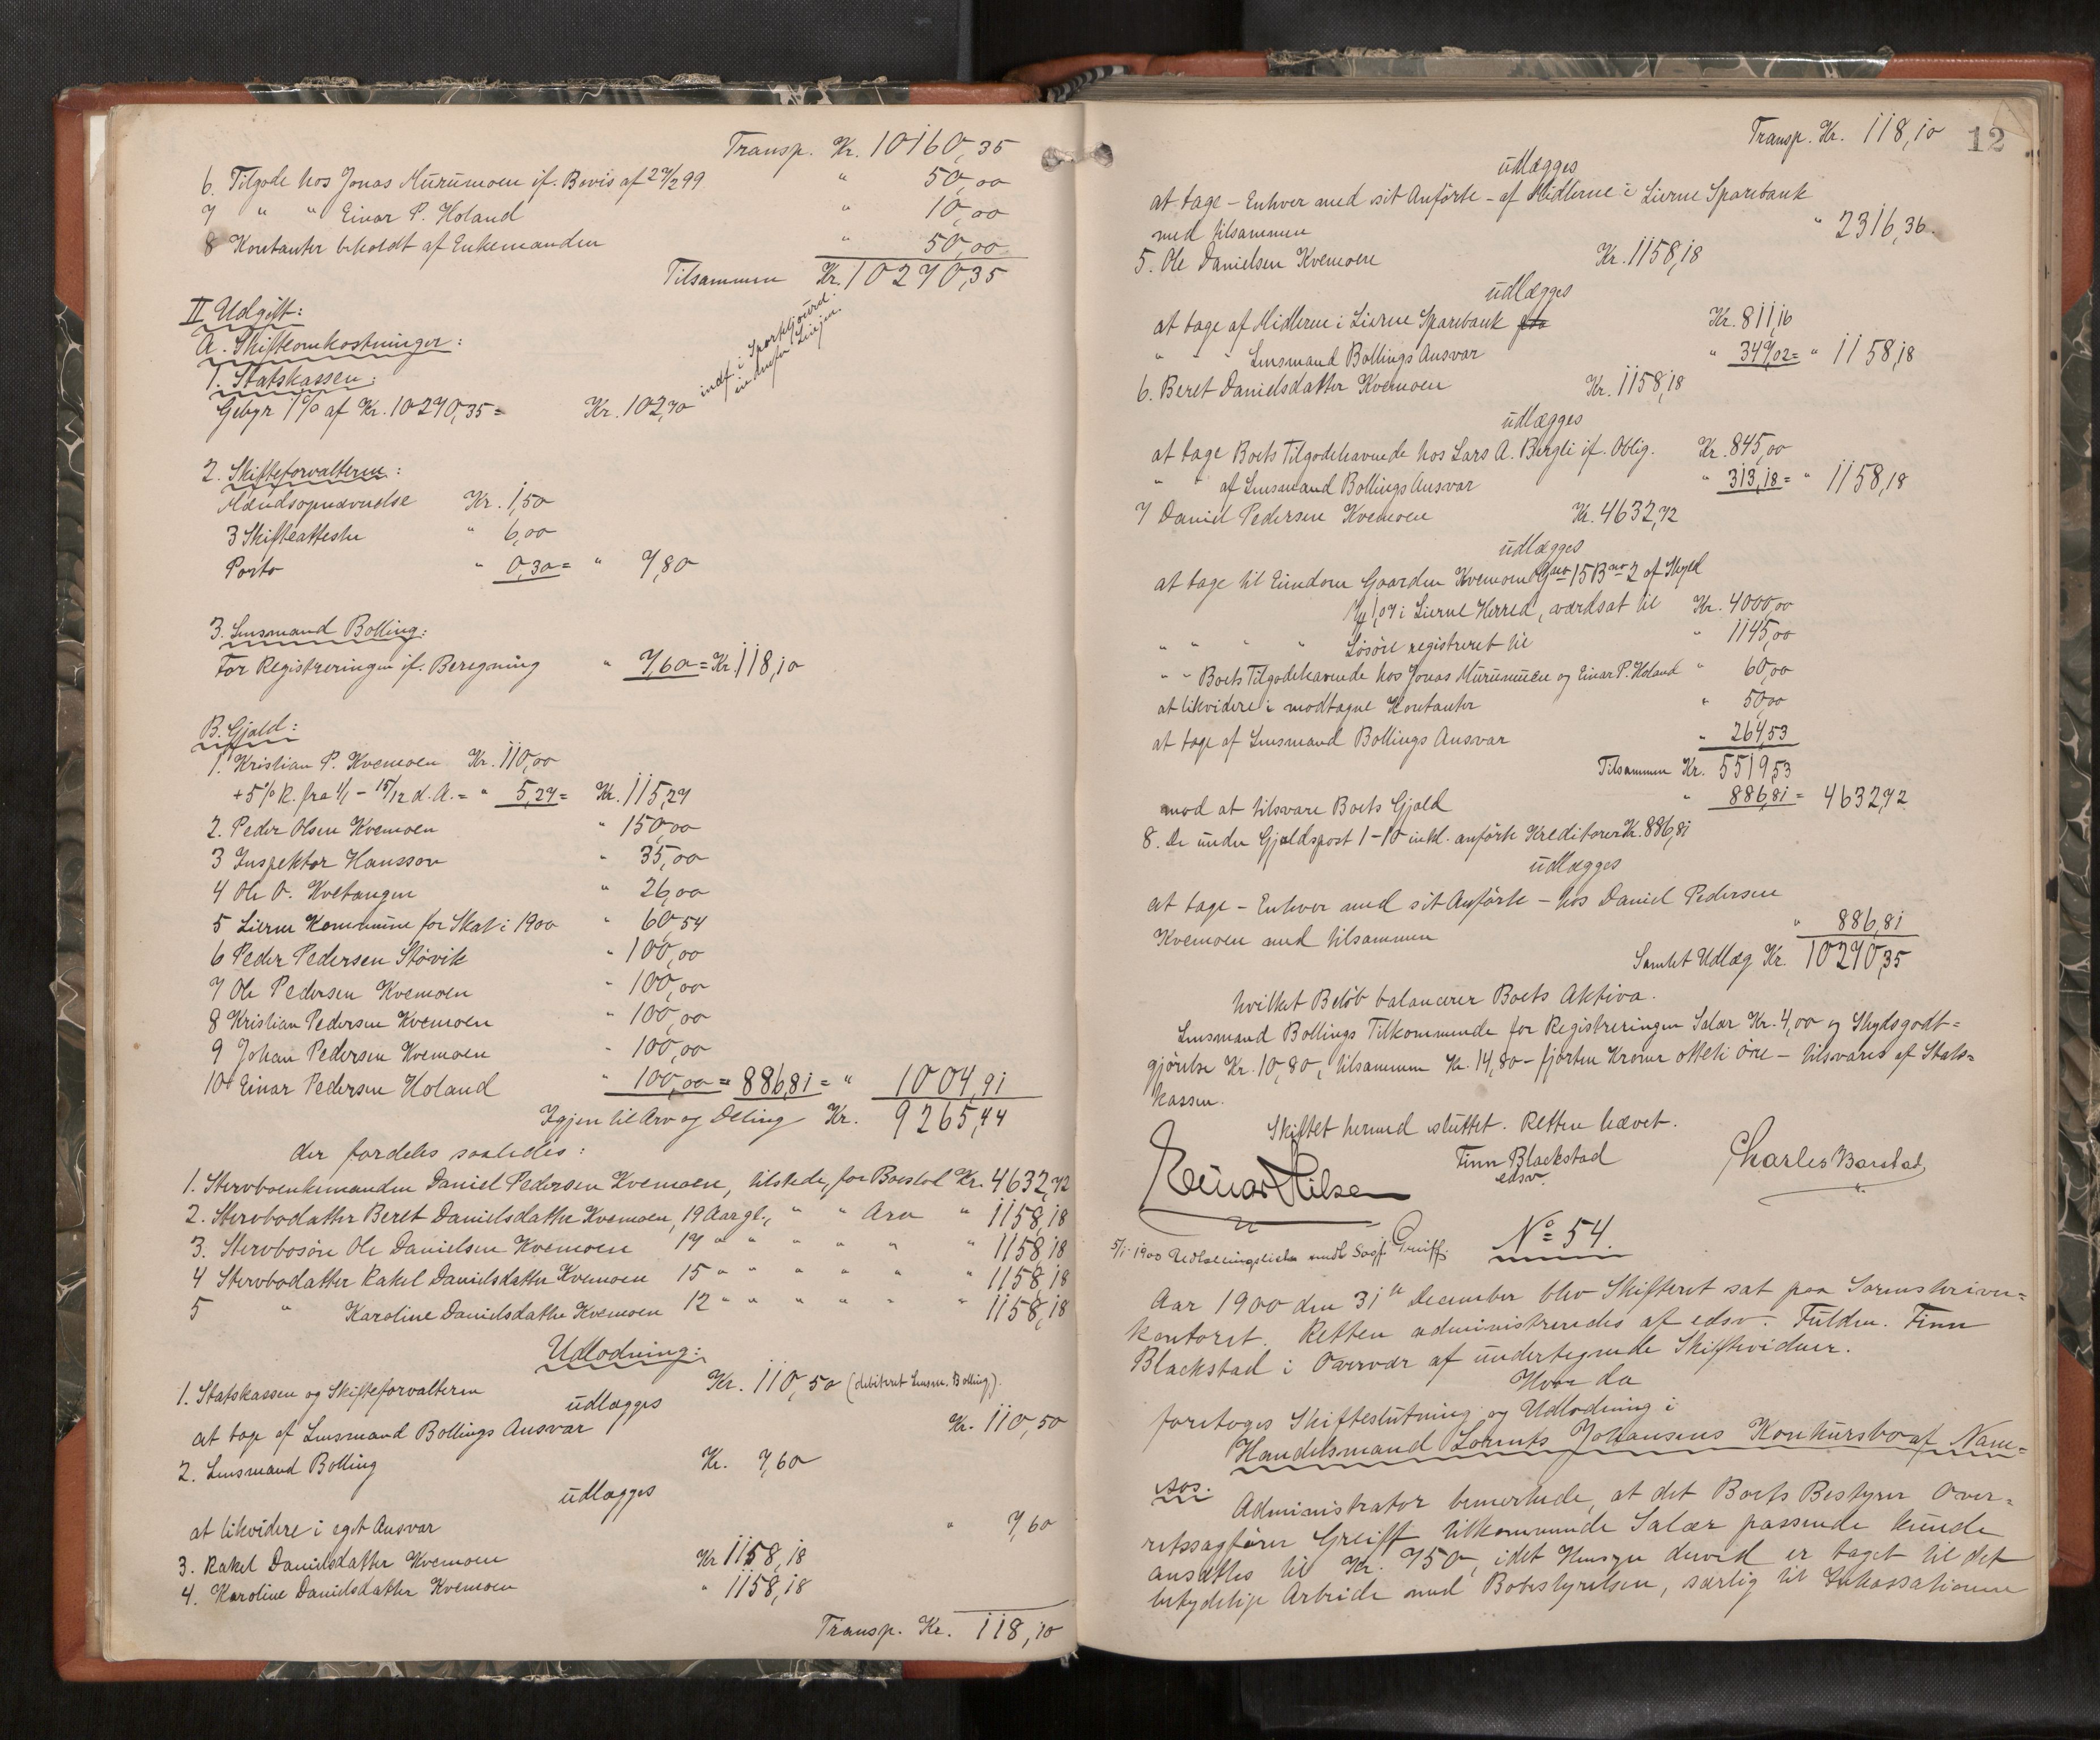 Transp. Kr. 10160,35
6. Tilgode hos Jonas Murumoen if. Bevis af 27/2 99 " 50,00
7 " " Einar P. Holand " 10,00
8 Kontanter beholdt af Enkemanden " 50,00
Tilsammen Kr. 10270,35
II Udgift:
A. Skifteomkostninger:
1. Statskassen:
Gebyr 1% af Kr. 10270,35 = Kr. 102,70
indf. i Sportljourn.
2. Skifteforvalteren:
Mændsopnævnelse Kr. 1,50
3 Skifteattester " 6,00
Porto " 0,30 = " 7,80
3. Lensmand Bolling:
For Registreringen if. Beregning " 7,60 = Kr. 118,10
B. Gjæld:
1. Kristian P. Kvemoen Kr. 110,00
+ 5% R. fra 1/1 - 15/12 d. A. = " 5,27 = Kr. 115,27
2. Peder Olsen Kvemoen " 150,00
3 Inspektor Hansson " 35,00
4 Ole O. Kvetangen " 26,00
5 Lierne Kommune for Skat i 1900 " 60,54
6 Peder Pedersen Støvik " 100,00
7 Ole Pedersen Kvemoen " 100,00
8 Kristian Pedersen Kvemoen " 100,00
9 Johan Pedersen Kvemoen " 100,00
10 Einar Pedersen Holand " 100,00 = 886,81 = " 1004,91
Igjen til Arv og Deling Kr. 9265,44
der fordeles saaledes:
1. Stervboenkemanden Daniel Pedersen Kvemoen, tilstede, for Boeslod Kr. 4632,72
2. Stervbodatter Beret Danielsdatter Kvemoen, 19 Aar gl., " " Arv " 1158,18
3. Stervbosøn Ole Danielsen Kvemoen 17 " " " " " " 1158,18
4 Stervbodatter Rakel Danielsdatter Kvemoen 15 " " " " " " 1158,18
5 " Karoline Danielsdatter Kvemoen 12 " " " " " " 1158,18
Udlodning:
1. Statskassen og Skifteforvalteren Kr. 110,50 (debiteret Lensm. Bolling).
udlægges
at tage af Lensmand Bollings Ansvar Kr. 110,50
2. Lensmand Bolling Kr. 7,60
udlægges
at likvidere i eget Ansvar " 7,60
3. Rakel Danielsdatter Kvemoen Kr 1158,18
4. Karoline Danielsdatter Kvemoen " 1158,18
Transp. Kr. 118,10
12
Transp. Kr. 118,10
udlægges
at tage - Enhver med sit Anførte - af Midlerne i Lierne Sparebank
med tilsammen " 2316,36.
5. Ole Danielsen Kvemoen Kr. 1158,18
udlægges
at tage af Midlerne i Lierne Sparebank Kr. 811,16
" " " Lensmand Bollings Ansvar " 347,02 = " 1158,18
6. Beret Danielsdatter Kvemoen Kr. 1158,18
udlægges
at tage Boets Tilgodehavende hos Lars A. Bergli if. Oblig. Kr. 845,00
" " af Lensmand Bollings Ansvar " 313,18 = " 1158,18
7 Daniel Pedersen Kvemoen Kr. 4632,72
udlægges
at tage til Eiendom Gaarden Kvemoen Gno 15 Bno 2 af Skyld
My 1,07 i Lierne Herred, værdsat til Kr. 4000,00
" " " " Løsøre registreret til " 1145,00
" " Boets Tilgodehavende hos Jonas Murumoen og Einar P. Holand " 60,00
at likvidere i modtagne Kontanter " 50,00
at tage af Lensmand Bollings Ansvar " 264,53
Tilsammen Kr. 5519,53
mod at tilsvare Boets Gjæld " 886,81 = 4632,72
8. De under Gjældspost 1-10 inkl. anførte Kreditorer Kr. 886,81
udlægges
at tage - Enhver med sit Anførte - hos Daniel Pedersen
Kvemoen med tilsammen " 886,81
Samlet Udlæg Kr. 10270,35
hvilket Beløb balancerer Boets Aktiva.
Lensmand Bollings Tilkommende for Registreringen Salær Kr. 4,00 og Skydsgodt=
gjørelse Kr. 10,80, tilsammen Kr. 14,80 - fjorten Kroner otteti Øre - tilsvares af Stats=
kassen.
Skiftet hermed sluttet. Retten hævet.
Finn Blackstad
edsv.
Einar Nilsen
Charles Barstad
5/1 1900 Udlodningsliste medt Sagf. Greiff.
No 54.
Aar 1900 den 31te December blev Skifteret sat paa Sorenskriver=
kontoret. Retten administreredes af edsv. Fuldm. Finn
Blackstad i Overvær af undertegnede Skiftevidner.
Hvor da
foretoges Skifteslutning og Udlodning i
Handelsmand Lorents Johansens Konkursbo af Nam=
sos.
Administrator bemerkede, at det Boets Bestyrer Over=
retssagfører Greiff tilkommende Salær passende kunde
ansættes til Kr. 750, idet Hensyn derved er taget til det
betydelige Arbeide med Bobestyrelsen, særlig til Inkassationen